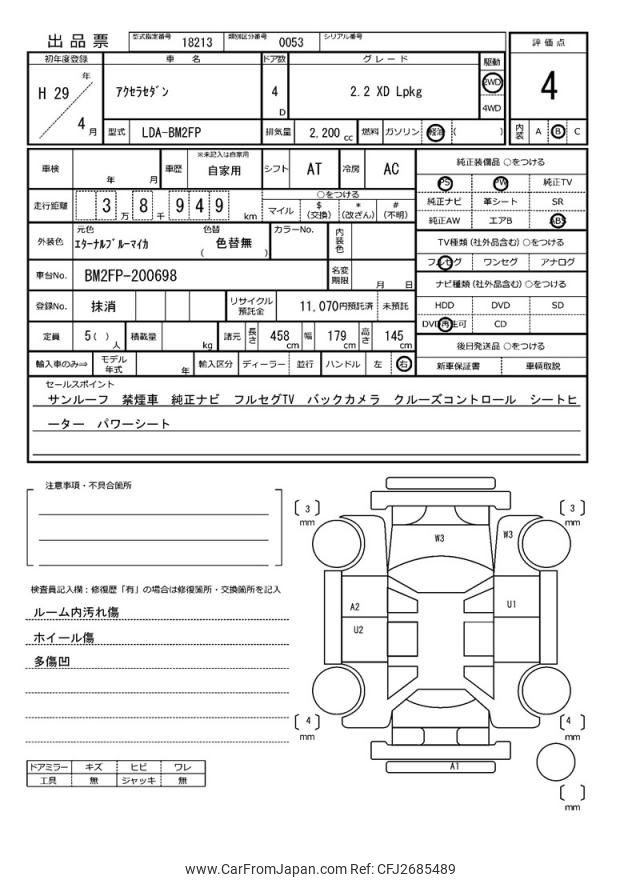 出品票 型式指定番号 18213 類別区分番号 0053 シリアル番号
評価点
4
内装 A B C
初年度登録 車名 ドア数 グレード 駆動
H 29 年 4 月
アクセラセダン 4 D 2.2 XD Lpkg 2WD 4WD
型式 LDA-BM2FP 排気量 2,200 cc 燃料 ガソリン 軽油 ( )
車検 年 月 車歴 ※未記入は自家用 自家用 シフト AT 冷房 AC
走行距離 3 万 8 千 9 4 9 km ○をつける
マイル $ (交換) * (改ざん) # (不明)
外装色 元色 エターナルブルーマイカ 色替 ( 色替無 ) カラーNo. 内装色
車台No. BM2FP-200698 名変期限 月 日
登録No. 抹消 リサイクル預託金 11,070円預託済 未預託
定員 5( ) 人 積載量 kg 諸元 長さ 458 cm 幅 179 cm 高さ 145 cm
輸入車のみ⇨ モデル年式 年 輸入区分 ディーラー 並行 ハンドル 左 右
純正装備品 ○をつける
PS PW 純正TV
純正ナビ 革シート SR
純正AW エアB ABS
TV種類 (社外品含む) ○をつける
フルセグ ワンセグ アナログ
ナビ種類 (社外品含む) ○をつける
HDD DVD SD
DVD再生可 CD
後日発送品 ○をつける
新車保証書 車輌取説
セールスポイント
サンルーフ 禁煙車 純正ナビ フルセグTV バックカメラ クルーズコントロール シートヒ
ーター パワーシート
注意事項・不具合箇所
検査員記入欄：修復歴「有」の場合は修復箇所・交換箇所を記入
ルーム内汚れ傷
ホイール傷
多傷凹
ドアミラー キズ ヒビ ワレ
工具 無 ジャッキ 無
3 mm
3 mm
W3
W3
A2
U1
U2
4 mm
4 mm
A1
mm
www.CarFromJapan.com Ref: CFJ2685489